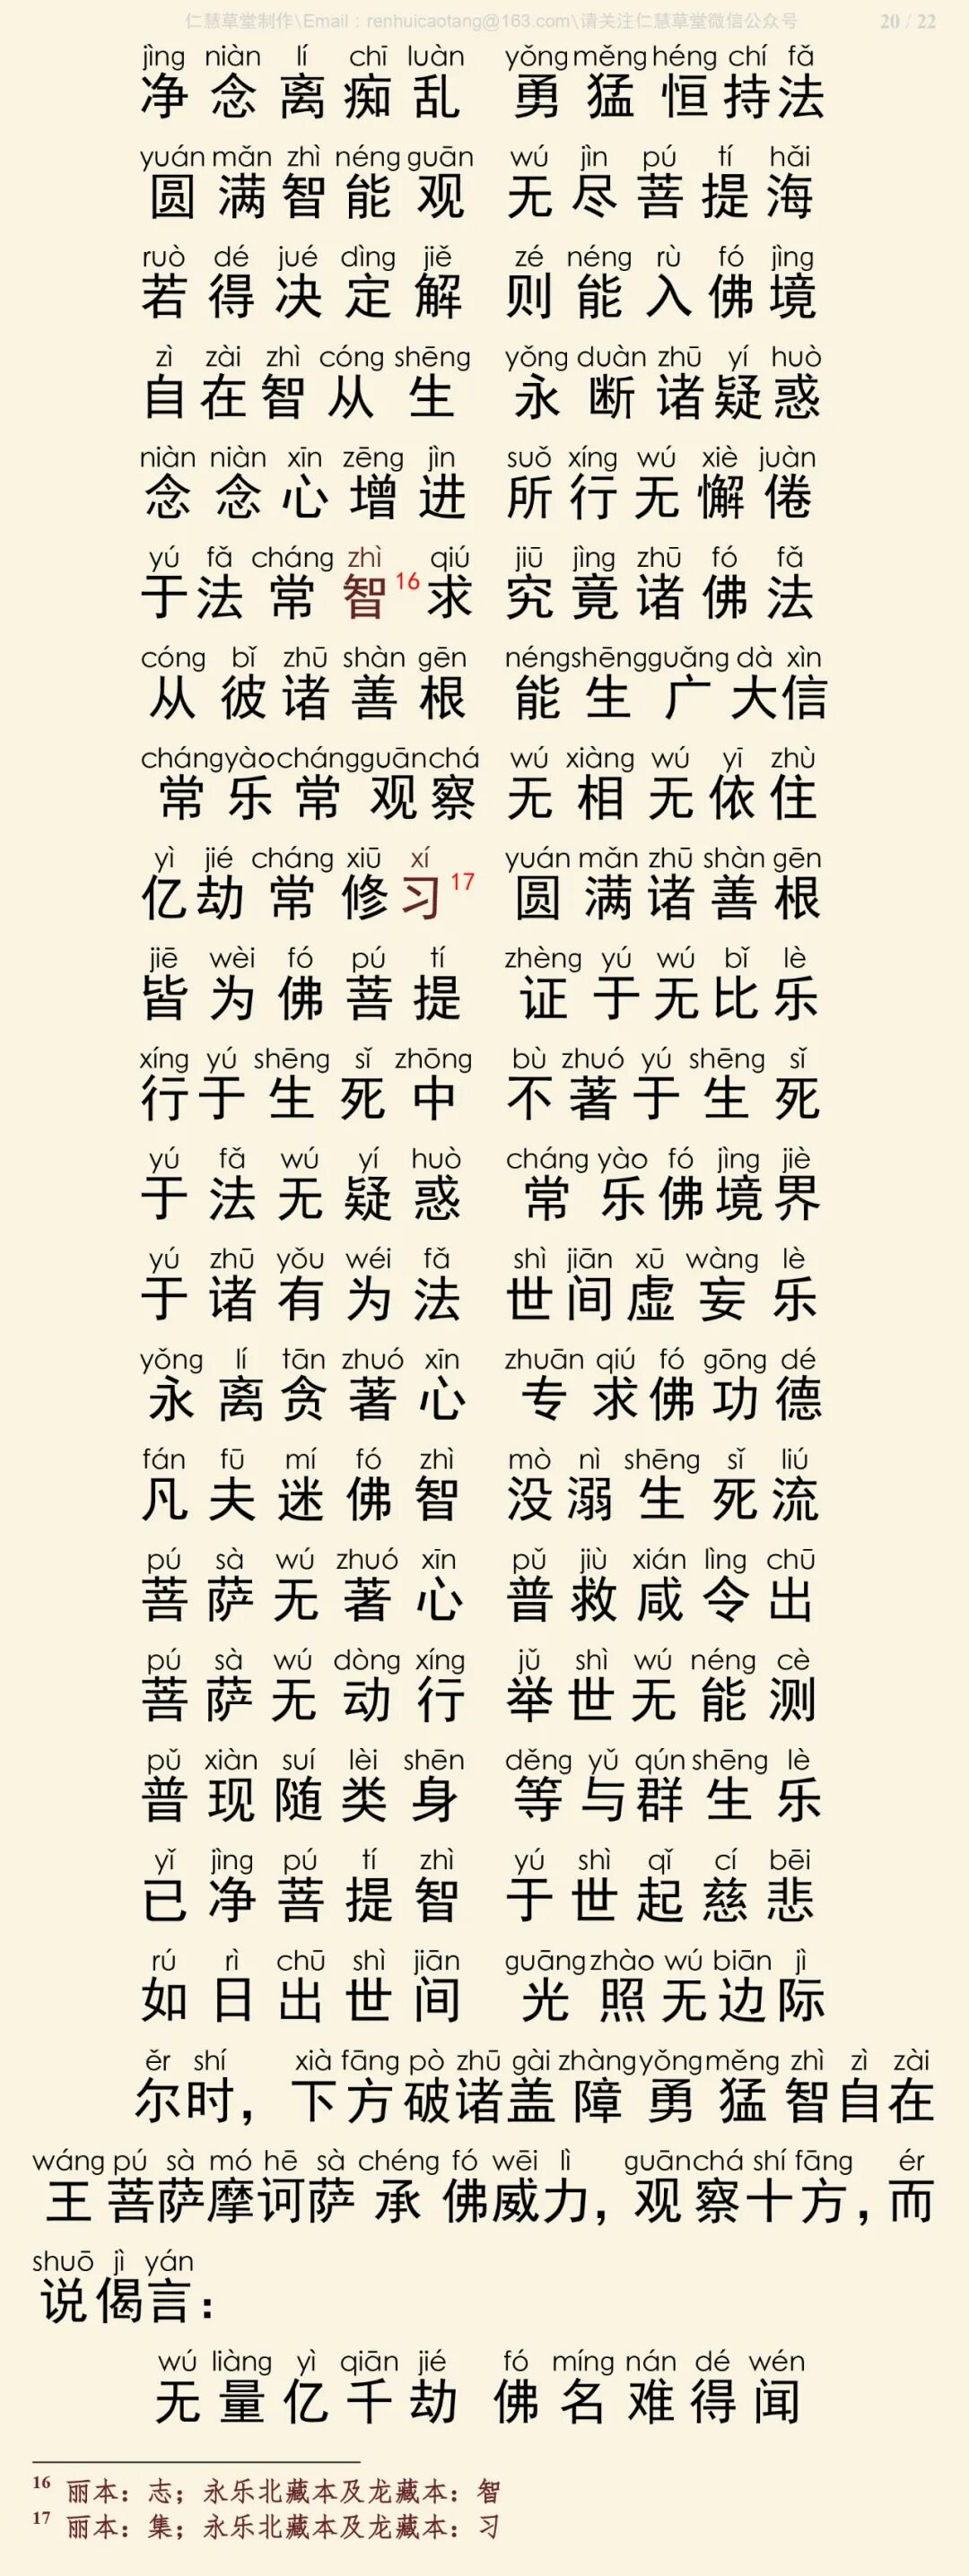 仁慧草堂制作\Email：renhuicaotang@163.com\请关注仁慧草堂微信公众号 20 / 22
jìng niàn lí chī luàn yǒng měng héng chí fǎ
净念离痴乱 勇猛恒持法
yuán mǎn zhì néng guān wú jìn pú tí hǎi
圆满智能观 无尽菩提海
ruò dé jué dìng jiě zé néng rù fó jìng
若得决定解 则能入佛境
zì zài zhì cóng shēng yǒng duàn zhū yí huò
自在智从生 永断诸疑惑
niàn niàn xīn zēng jìn suǒ xíng wú xiè juàn
念念心增进 所行无懈倦
yú fǎ cháng zhì qiú jiū jìng zhū fó fǎ
于法常智16求 究竟诸佛法
cóng bǐ zhū shàn gēn néng shēng guǎng dà xìn
从彼诸善根 能生广大信
cháng yào cháng guān chá wú xiàng wú yī zhù
常乐常观察 无相无依住
yì jié cháng xiū xí yuán mǎn zhū shàn gēn
亿劫常修习17 圆满诸善根
jiē wèi fó pú tí zhèng yú wú bǐ lè
皆为佛菩提 证于无比乐
xíng yú shēng sǐ zhōng bù zhuó yú shēng sǐ
行于生死中 不著于生死
yú fǎ wú yí huò cháng yào fó jìng jiè
于法无疑惑 常乐佛境界
yú zhū yǒu wéi fǎ shì jiān xū wàng lè
于诸有为法 世间虚妄乐
yǒng lí tān zhuó xīn zhuān qiú fó gōng dé
永离贪著心 专求佛功德
fán fū mí fó zhì mò nì shēng sǐ liú
凡夫迷佛智 没溺生死流
pú sà wú zhuó xīn pǔ jiù xián lìng chū
菩萨无著心 普救咸令出
pú sà wú dòng xíng jǔ shì wú néng cè
菩萨无动行 举世无能测
pǔ xiàn suí lèi shēn děng yǔ qún shēng lè
普现随类身 等与群生乐
yǐ jìng pú tí zhì yú shì qǐ cí bēi
已净菩提智 于世起慈悲
rú rì chū shì jiān guāng zhào wú biān jì
如日出世间 光照无边际
ěr shí xià fāng pò zhū gài zhàng yǒng měng zhì zì zài
尔时，下方破诸盖障勇猛智自在
wáng pú sà mó hē sà chéng fó wēi lì guān chá shí fāng ér
王菩萨摩诃萨承佛威力，观察十方，而
shuō jì yán
说偈言：
wú liàng yì qiān jié fó míng nán dé wén
无量亿千劫 佛名难得闻
16 丽本：志；永乐北藏本及龙藏本：智
17 丽本：集；永乐北藏本及龙藏本：习